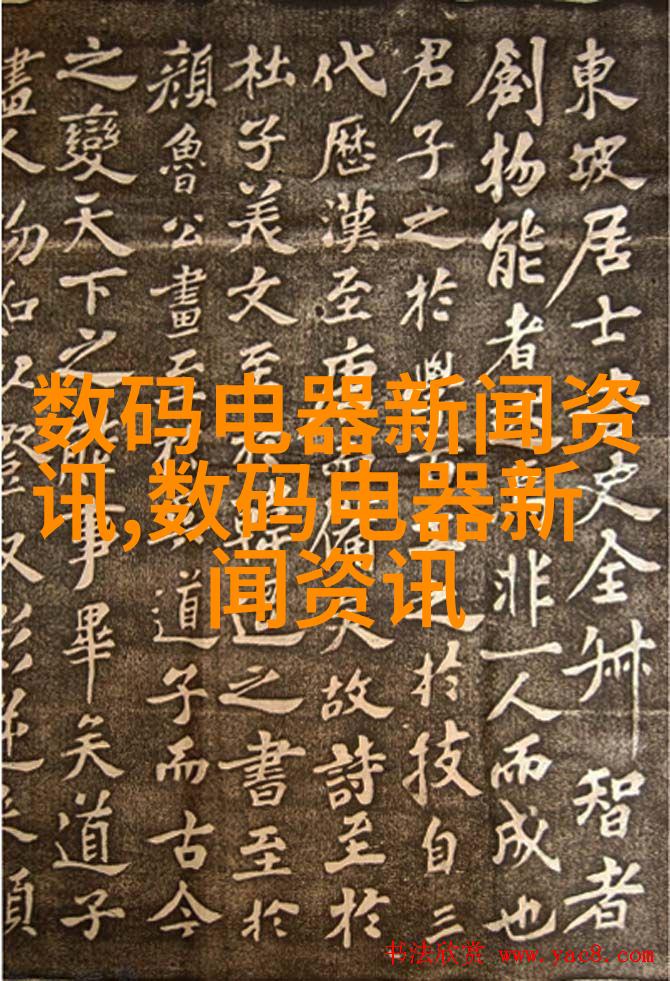 東坡居士史全叔智者
創物能者非一人而成也
君子之於學之於技自三
代歷漢至唐備矣故詩至於
杜子美文至於韓退之書至於
顏魯公畫至道子而古今
之變天下之能事畢矣道子
畫人物
数码电器新闻资
讯,数码电器新
闻资讯
书法欣赏 www.yac8.com